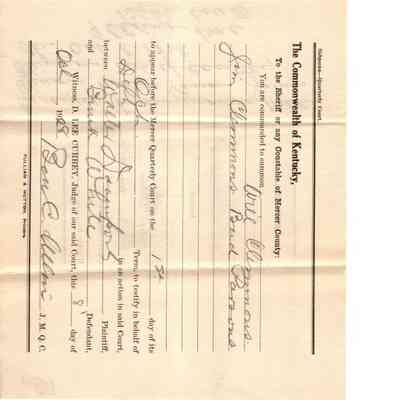 Subpoena—Quarterly Court.
The Commonwealth of Kentucky,
To the Sheriff or any Constable of Mercer County:
You are commanded to summon Will Clemmons
Jim Clemmons Bud Parsons
to appear before the Mercer Quarterly Court on the 1st day of its
Oct Term, to testify in behalf of
Deft in an action in said Court,
between Walter Davenport Plaintiff,
and White Defendant,
Witness, D. LEE CURREY, Judge of our said Court, this 8 day of
Oct 1928
Ben C. Allen J. M. Q. C.
PULLIAM & HUTTON, Printers